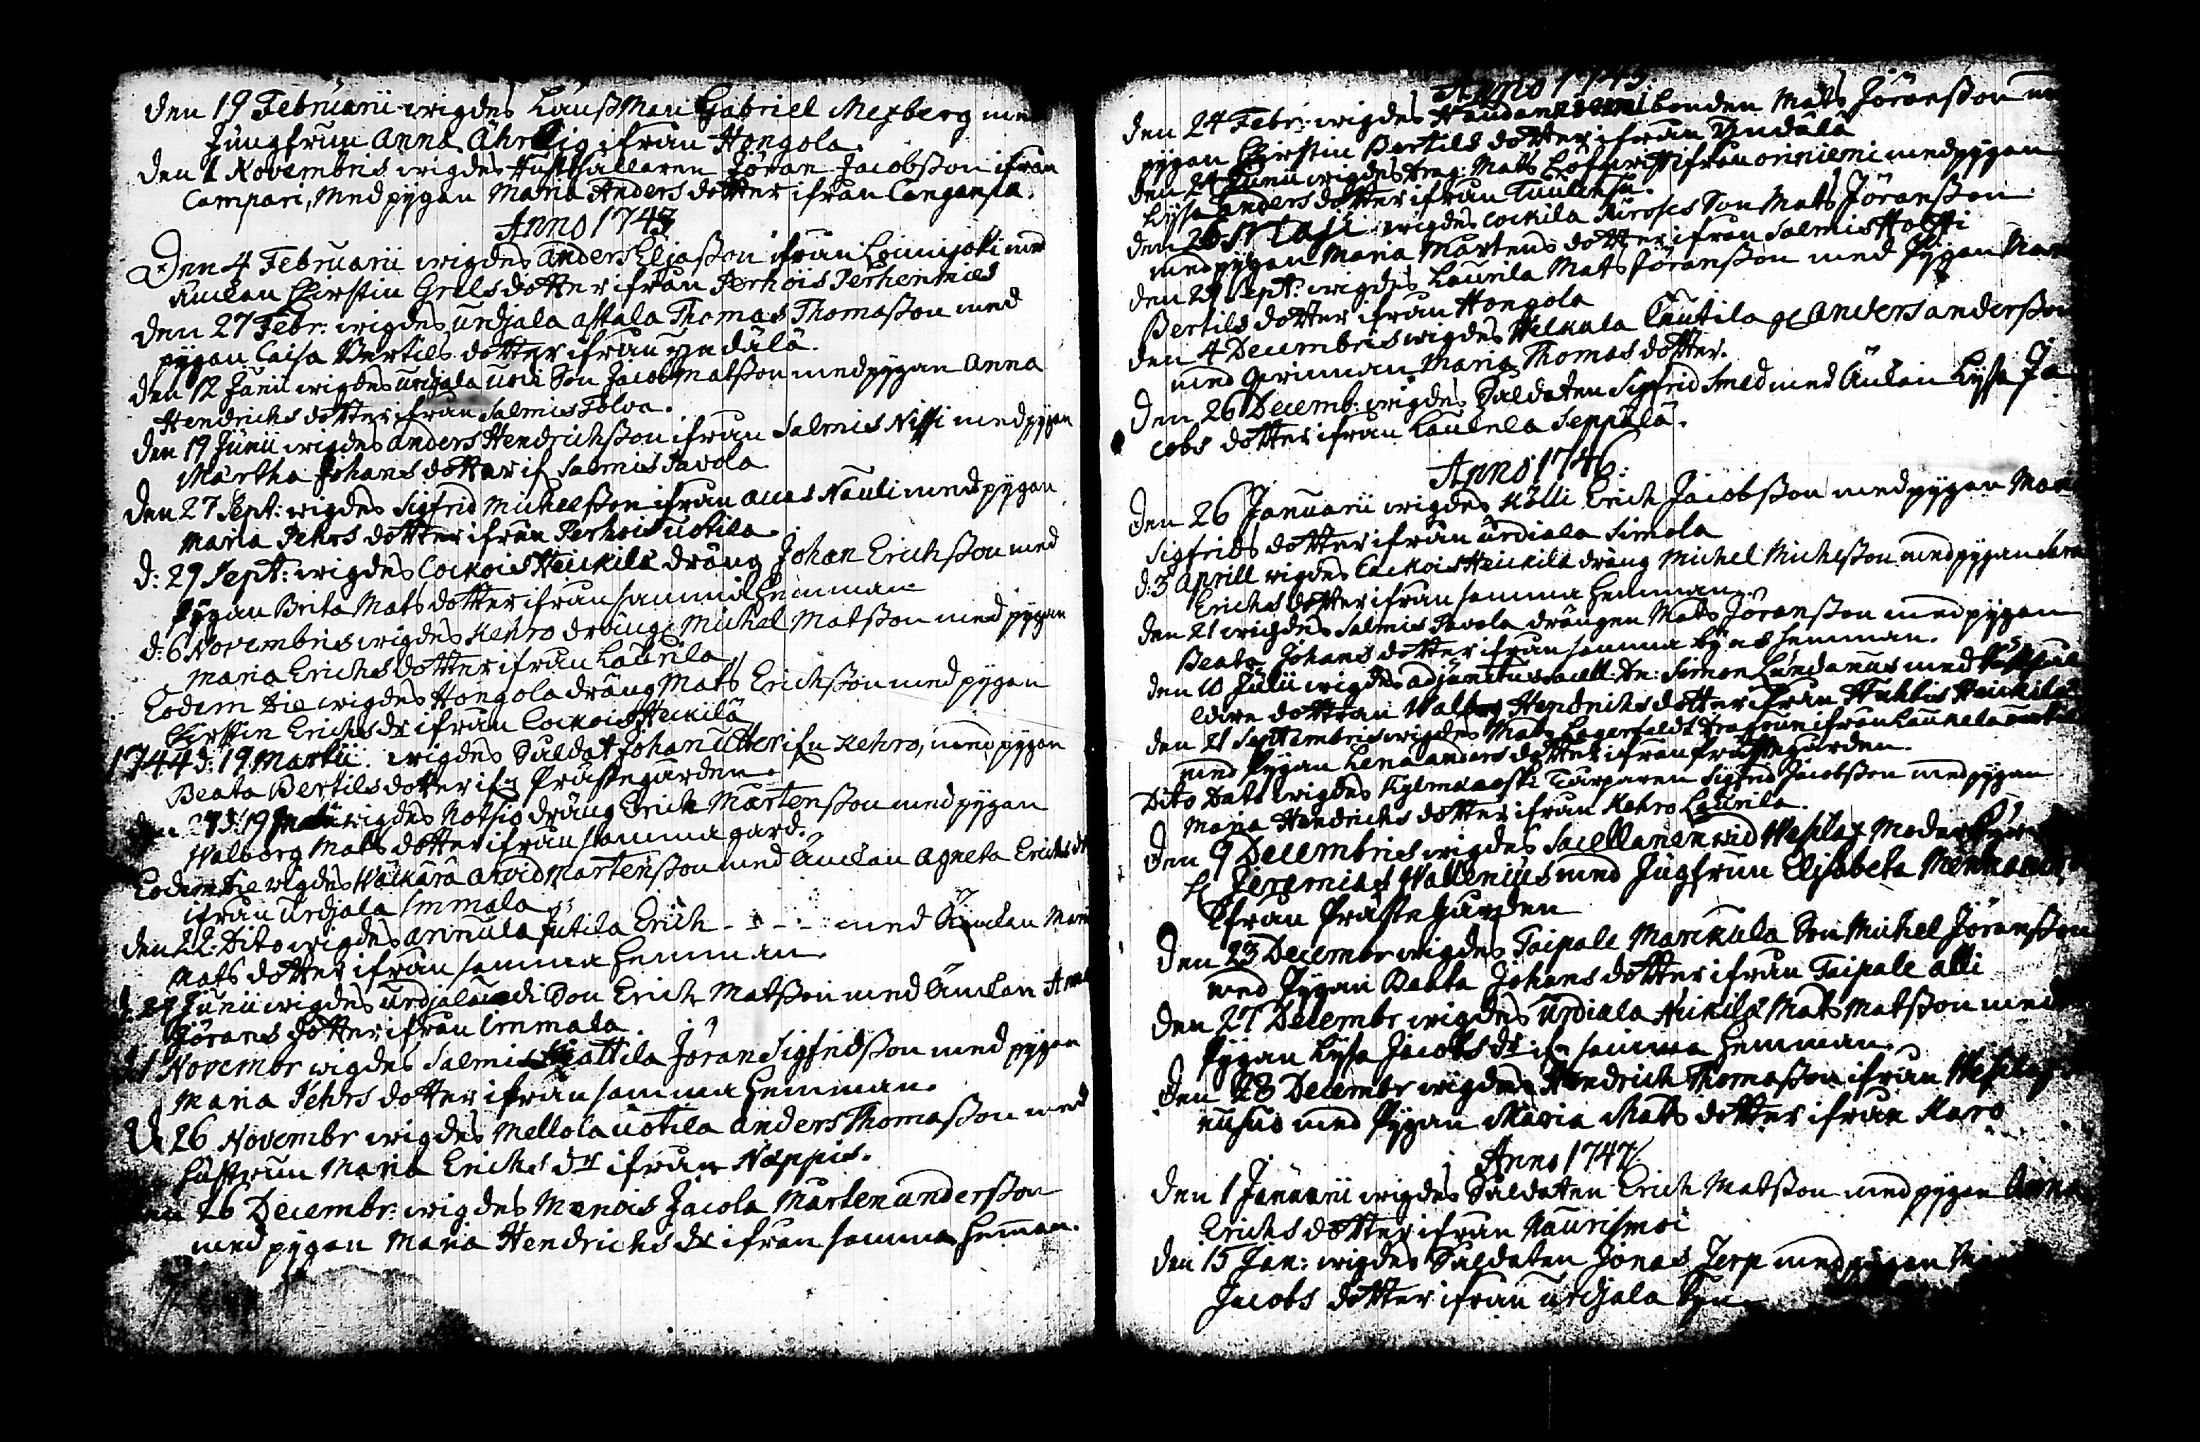 Den 19 Februarii wigdes Länßman Gabriel Mexberg med
Jungfrun Anna Ahrelig ifrån Hongola.
Den 1 Novembris wigdes Husthållaren Jöran Jacobsson ifrån
Campari, Med pygan Maria Anders dotter ifrån Canganpä.
Anno 1743
Den 4 Februarii wigdes Anders Eljasson ifrån Lounijoki med
Änckan Chirstin Grels dotter ifrån Perhois Perhenmäs
Den 27 Febr: wigdes Urdjala Astala Thomas Thomasson med
pygan Caisa Bertils dotter ifrån Yndälä.
Den 12 Junii wigdes Urdjala Uodi Son Jacob Matsson med pygan Anna
Hendrichs dotter ifrån Salmis Tolva.
Den 19 Junii wigdes Anders Hendrichsson ifrån Salmis Nissi med pygan
Märtha Johans dotter if Salmis Pavola
Den 27 Sept: wigdes Sigfrid Michelsson ifrån Auas Nauli med pygan
Maria Pehrs dotter ifrån Perhois Uotila
d: 29 Sept: wigdes Cockois Heickilä dräng Johan Erichsson med
Pygan Brita Mats dotter ifrån samma Hemman
d: 6 Novembris wigdes Kehro dräng Michel Matsson med pygan
Maria Erichs dotter ifrån Laurila
Eodem Die wigdes Hongola dräng Mats Erichsson med pygan
Chirstin Erichs dr ifrån Cockois Heickilä
1744 d: 19 Martii. wigdes Saldat Johan Utter ifn Kehro, med pygan
Beata Bertils dotter ifn Prästegården.
wigdes Notsio dräng Erich Mårtensson med pygan
Walborg Mats dotter ifrån samma gård.
Eodem Die wigdes Wäckärä Arvid Mårtensson med Änckan Agneta Erichs dr
ifrån Urdjala Immala
Den 22: Dito wigdes Annula Jutila Erich - - - - med Änckan Mari
Mats dotter ifrån samma Hemman.
Junii wigdes Urdjala Uodi Son Erich Matsson med Änckan Anna
Jörans dotter ifrån Immala.
Novembr wigdes Salmis Mattila Jöran Sigfridsson med pygan
Maria Pehrs dotter ifrån samma Hemman.
26 Novembr wigdes Mellola Uotila Anders Thomasson med
Hustrun Maria Erichs dr ifrån Nappis.
26 Decembr: wigdes Menois Jacola Mårten Andersson
med pygan Maria Hendrichs dr ifrån samma Heman.
Anno 1745.
Den 24 Febr: wigdes bonden Mats Jöransson
pygan Chirstin Bertils dotter ifrån Yndälä
Den 24 Junii wigdes Drag: Mats ifrån Oriniemi med pygan
Lysa Anders dotter ifrån
Den wigdes Cockila Son Mats Jöransson
med pygan Maria Mårtens dotter ifrån Salmis Hossi
Den 29 Sept: wigdes Laurila Mats Jöransson med Pygan
Bertils dotter ifrån Hongola
Den 4 Decembris wigdes Welkula Cautila Anders Andersson
med qwinnan Maria Thomas dotter.
Den 26 Decemb: wigdes Saldaten Sigfrid Smed med Änckan Lysa Ja
cobs dotter ifrån Laukela Seppälä.
Anno 1746:
Den 26 Januarii wigdes Kölli Erich Jacobsson med pygan
Sigfrids dotter ifrån Urdiala Simola
d: 3 Aprill wigdes Cackois Heickilä dräng Michel Michelsson med pygan
Erichs dotter ifrån samma Hemman.
Den 21 wigdes Salmis Pavola drängen Mats Jöransson med pygan
Beata Johans dotter ifrån samma bynes Hemman.
Den 10 Julii wigdes Adjunctus Sacell: Dn: Simon Lundanus med
dottran Walborg Hendrichs dotter ifrån Huhtis Heickilä
Den 21 Septembris wigdes Mats Lagerfeldt Dragoun ifrån Laukela
med Pygan Lena Anders dotter ifrån Prästegården.
Dito Dato wigdes Kylmäkoski Torparen Sigfrid Jacobsson med pygan
Maria Hendrichs dotter ifrån Kehro Laurila.
Den 9 Decembris wigdes Sacellanen wid Wesilax Moder Kyrckan
H Jeremias Wallenius med Jugfrun Elisabeta
Ifrån Präste Gården
Den 23 Decembr wigdes Taipale Marckula Son Michel Jöransson
med Pygan Beata Johans dotter ifrån Taipale Alli
Den 27 Decembr wigdes Urdiala Heickilä Mats Matsson med
Pygan Lysa Jacobs dr ifn samma Hemman.
Den 28 Decembr wigdes Hendrich Thomasson ifrån
med Pygan Maria Mats dotter ifrån Karo
Anno 1747
Den 1 Januarii wigdes Saldaten Erich Matsson med pygan Anna
Erichs dotter ifrån Naurismoi
Den 15 Jan: wigdes Saldaten Jonas Jerp med pygan
Jacobs dotter ifrån Urdjala